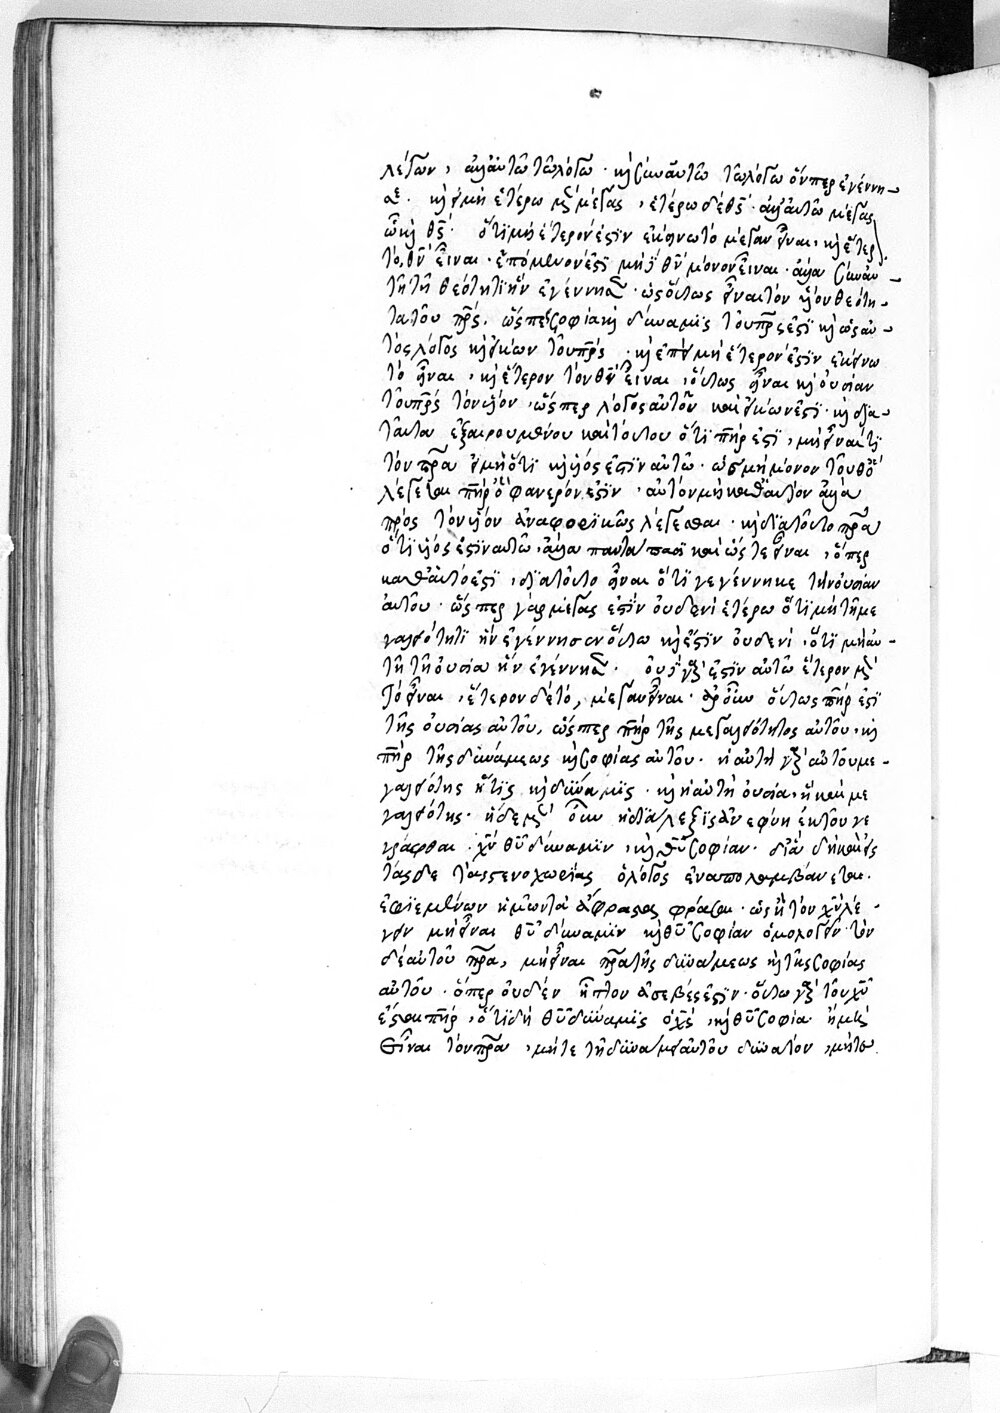 λέγων, ἀλλ' αὐτῶ τῶ λόγω· κ(αὶ) σὺν αὐτῶ τῶ λόγω ὅνπερ ἐγέννη-
σε. κ(αὶ) εἰ μὴ ἑτέρω μ(ὲν) μέγας, ἑτέρω δὲ θς· ἀλλ' αὐτῶ μέγας
ὧ κ(αὶ) θς· ὅτι μὴ ἕτερόν ἐστιν ἐκείνω τὸ μέγαν εἶναι, κ(αὶ) ἕτερ
τὸ, θν εἶναι· ἑπόμενόν ἐστι μὴ θν μόνον εἶναι· ἀλλὰ σὺν αὐ-
τῆ τῆ θεότητι ἣν ἐγέννησε· ὡς οὕτως εἶναι τὸν υἱὸν θεότη-
τα τοῦ πρς. ὥσπερ σοφία κ(αὶ) δύναμις τοῦ πρς ἐστι κ(αὶ) ὡς αὐ-
τὸς λόγος κ(αὶ) εἰκὼν τοῦ πρς. κ(αὶ) ἐπεὶ μὴ ἕτερόν ἐστιν ἐκείνω
τὸ εἶναι, κ(αὶ) ἕτερον τὸν θν εἶναι, οὕτως εἶναι κ(αὶ) οὐσίαν
τοῦ πρς τὸν υἱὸν, ὥσπερ λόγος αὐτοῦ καὶ εἰκών ἐστι· κ(αὶ) διὰ
ταῦτα ἐξαιρουμένου καὶ τούτου ὅτι πηρ ἐστι, μὴ εἶναί τι
τὸν πρα εἰ μὴ ὅτι κ(αὶ) υἱός ἐστιν αὐτῶ· ὡς μὴ μόνον τοῦθ' ὃ
λέγεται πηρ ὃ φανερόν ἐστιν· αὐτὸν μὴ καθ' αὑτὸν ἀλλὰ
πρὸς τὸν υἱὸν ἀναφορικῶς λέγεσθαι· κ(αὶ) διὰ τοῦτο πρα
ὅτι υἱός ἐστιν αὐτῶ, ἀλλὰ παντάπασι καὶ ὥστε εἶναι, ὅπερ
καθ' αὑτό ἐστι, διὰ τοῦτο εἶναι ὅτι γεγέννηκε τὴν οὐσίαν
αὐτοῦ· ὥσπερ γὰρ μέγας ἐστὶν οὐδενὶ ἑτέρω ὅτι μὴ τῆ με
γαλειότητι ἣν ἐγέννησεν οὕτω κ(αὶ) ἔστιν οὐδενὶ, ὅτι μὴ αὐ-
τῆ τῆ οὐσία ἣν ἐγέννησε· οὐ γάρ ἐστιν αὐτῶ ἕτερον μ(ὲν)
τὸ εἶναι, ἕτερον δὲ τὸ, μέγαν εἶναι· ἆρ' οὖν οὕτως πηρ ἐστι
τῆς οὐσίας αὐτοῦ, ὥσπερ πηρ τῆς μεγαλειότητος αὐτοῦ, κ(αὶ)
πηρ τῆς δυνάμεως κ(αὶ) σοφίας αὐτοῦ· ἡ αὐτὴ γὰρ αὐτοῦ με-
γαλειότης ἥτις κ(αὶ) δύναμις· κ(αὶ) ἡ αὐτὴ οὐσία, ἡ καὶ με
γαλειότης· ἡ δὲ μ(ὲν) οὖν ἡ διάλεξις ἀνεφύη ἐκ τοῦ γε
γράφθαι. χν θυ δύναμιν, κ(αὶ) θυ σοφίαν· διὰ δὴ καὶ εἰς
τάσδε τὰς στενοχωρίας ὁ λόγος ἐναπολαμβάνεται·
ἐφιεμένων ἡμῶν τὰ ἄφραστα φράσαι· ὡς ἢ τὸν χν λέ-
γειν μὴ εἶναι θυ δύναμιν κ(αὶ) θυ σοφίαν ὁμολογεῖν τὸν
δὲ αὐτοῦ πρα, μὴ εἶναι πρα τῆς δυνάμεως κ(αὶ) τῆς σοφίας
αὐτοῦ· ὅπερ οὐδὲν ἧττον ἀσεβές ἐστιν· οὕτω γὰρ τοῦ χυ
ἔσται πηρ, ὅτι δὴ θυ δύναμις ὁ χς, κ(αὶ) θυ σοφία ἢ μ(ὴ)
εἶναι τὸν πρα, μήτε τῆ δυνάμει αὐτοῦ δυνατὸν, μήτε